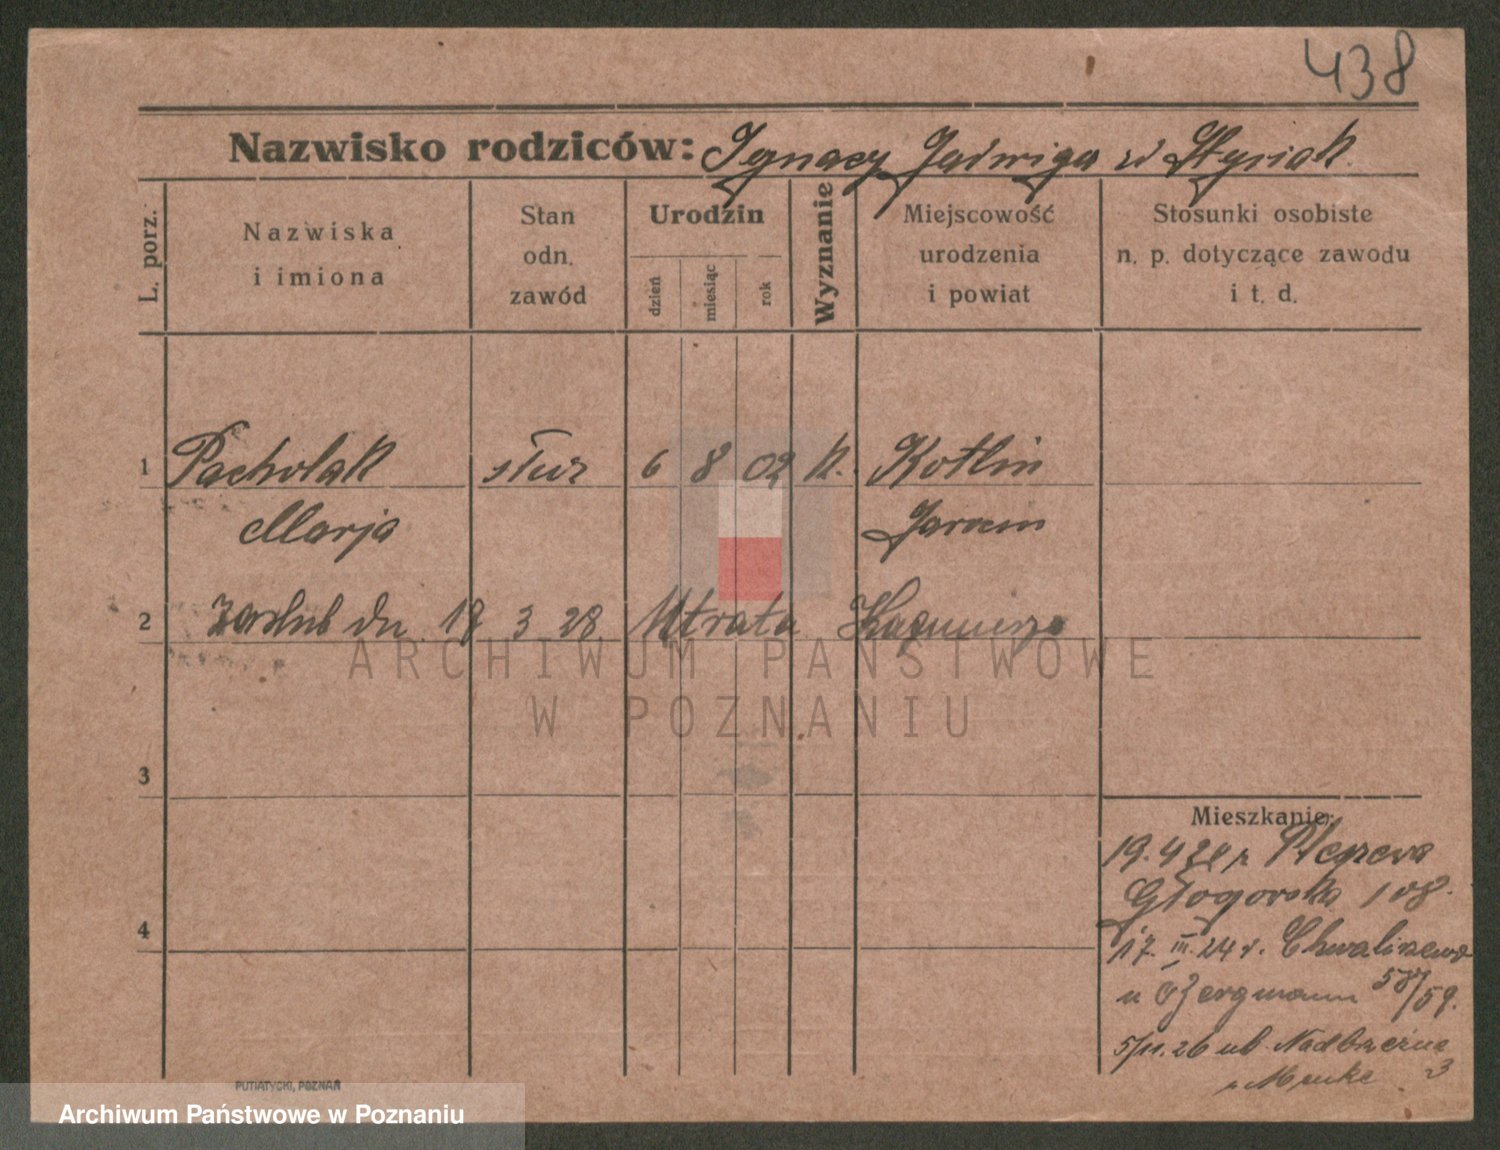 438
Nazwisko rodziców: Ignacy Jadwiga zd Stysiak.
L. porz.
Nazwiska
i imiona
Stan
odn.
zawód
Urodzin
dzień
miesiąc
rok
Wyznanie
Miejscowość
urodzenia
i powiat
Stosunki osobiste
n. p. dotyczące zawodu
i t. d.
1 Pacholak służ 6 8 02 k. Kotlin
Marja Jarocin
2 zaślub dn. 18 3 28 Utrata
ARCHIWUM PAŃSTWOWE
W POZNANIU
3
Mieszkanie:
19.4 z Pleszewa
Głogowska 108.
4
17. III. 24 r. Chwaliszewo
u Bergmann 58/59.
5/11.26 ul. Nadbrzeżna
3
PUTIATYCKI, POZNAŃ
Archiwum Państwowe w Poznaniu